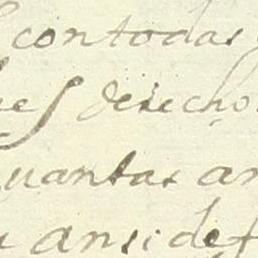 contodas
derecho
quantas an
ansi de